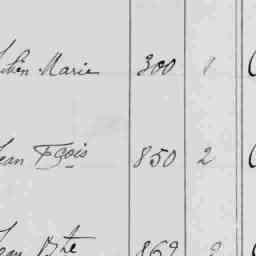 Marie 300 1
Jean Fçois 850 2
Jean Bte 869 2